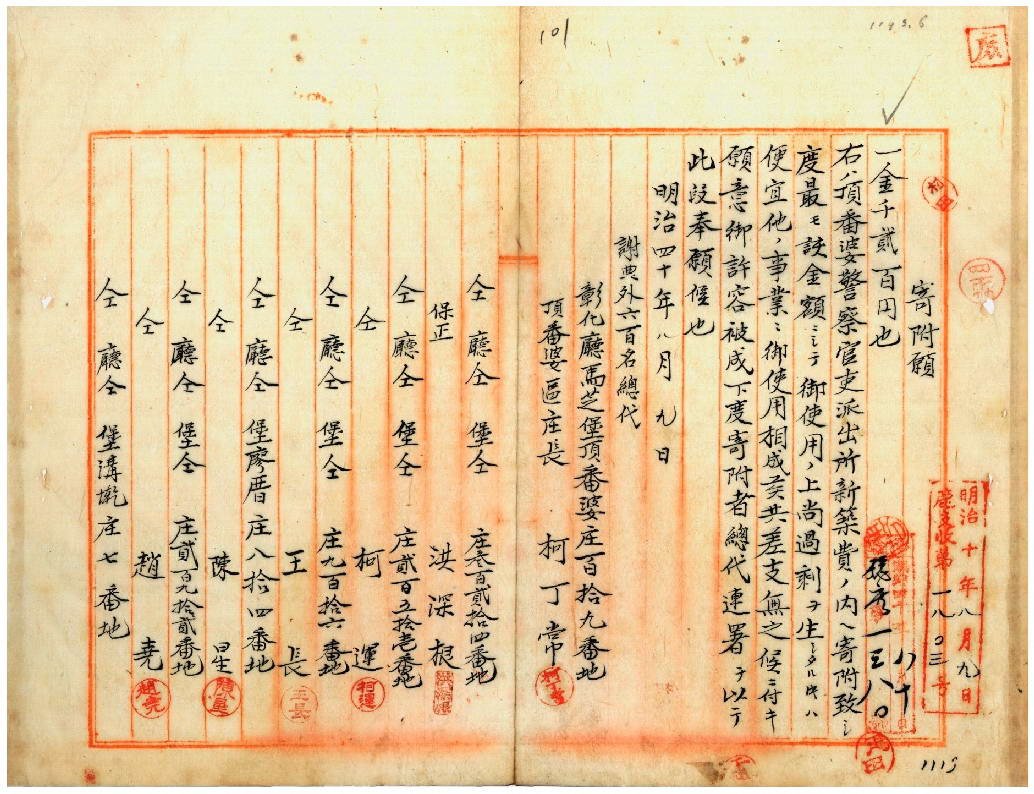 101
1193.6
廠
寄附願
一金千貳百円也
右ハ頂番婆警察官吏派出所新築費ノ内ヘ寄附致シ
度最モ該金額ニシテ御使用ノ上尚過剰ヲ生シタル時ハ
便宜他ノ事業ニ御使用相成候共差支無之候ニ付キ
願意御許容被成下度寄附者總代連署ヲ以テ
此段奉願候也
明治四十年八月九日
謝典外六百名總代
彰化廳馬芝堡頂番婆庄百拾九番地
頂番婆區庄長 柯丁常
仝廳仝堡仝庄叁百貳拾四番地
保正 洪深根
仝廳仝堡仝庄貳百五拾壱番地
仝 柯運
仝廳仝堡仝庄九百拾六番地
仝 王長
仝廳仝堡廖厝庄八拾四番地
仝 陳星
仝廳仝堡仝庄貳百九拾貳番地
仝 趙堯
仝廳仝堡溝墘庄七番地
明治十年八月九日
一八〇三号
一三八〇
王長
柯運
趙堯
1113